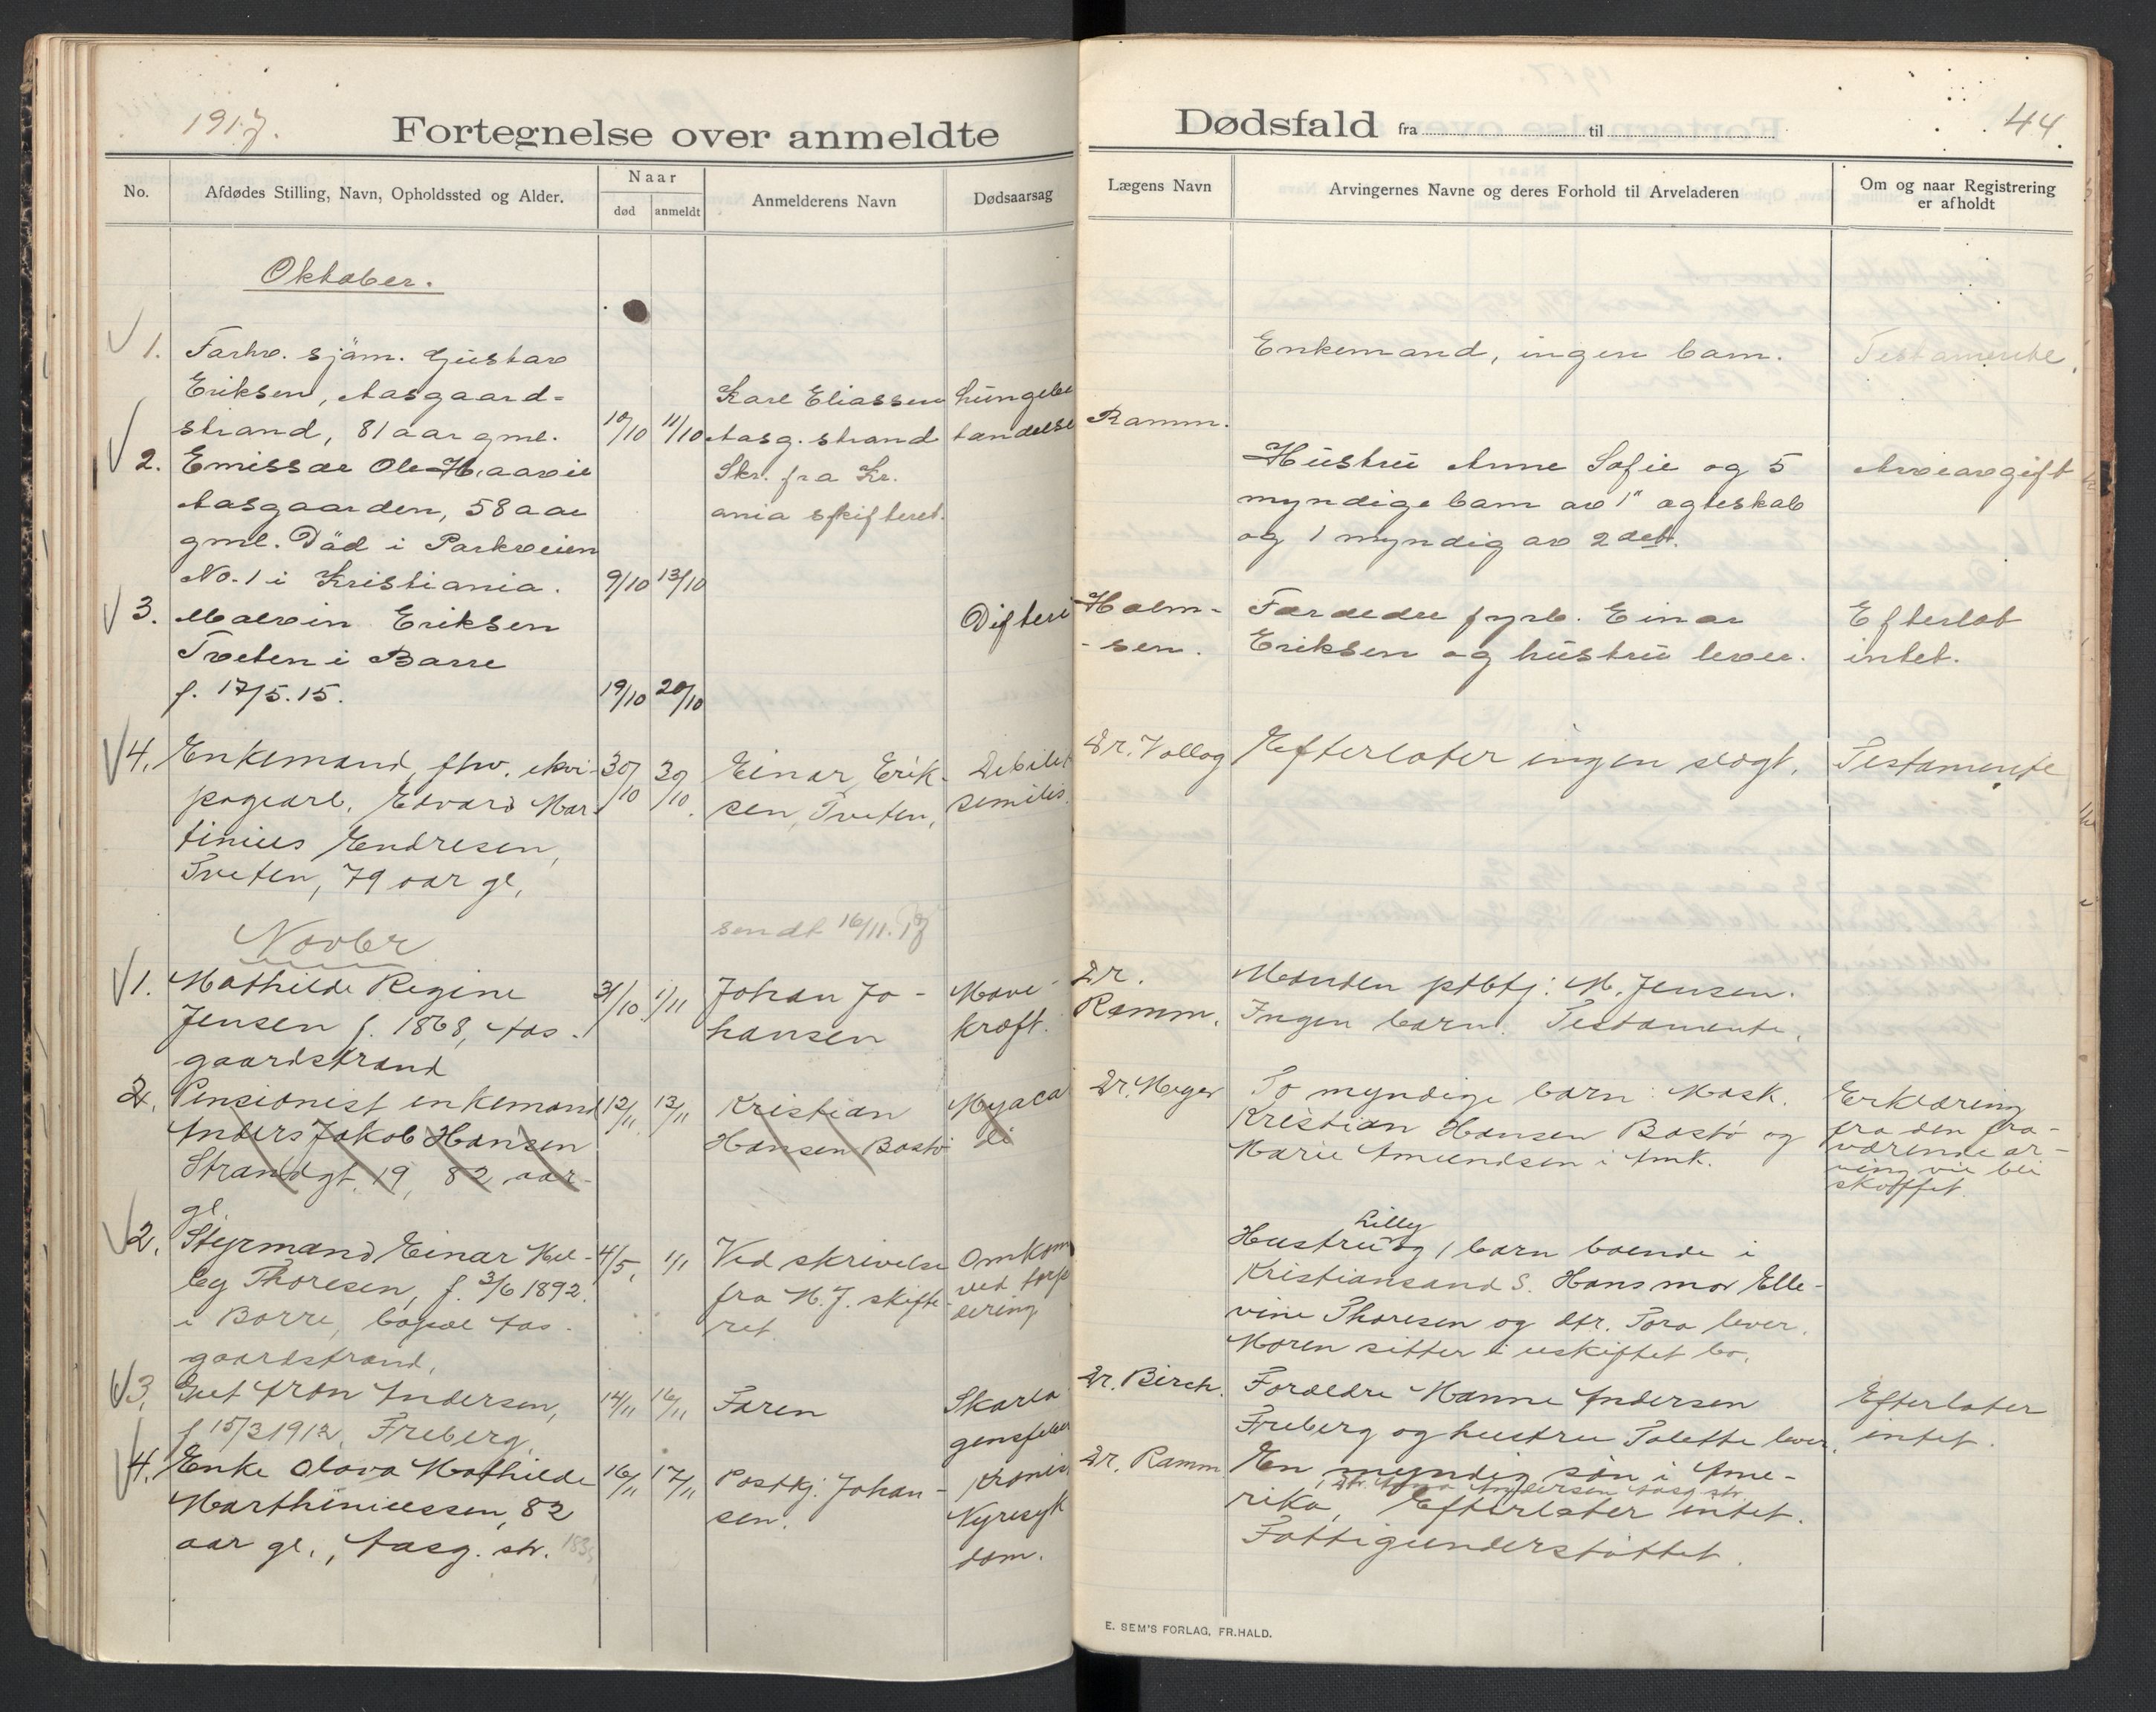 1917.
Fortegnelse over anmeldte
No.
Afdødes Stilling, Navn, Opholdssted og Alder.
Naar
død
anmeldt
Anmelderens Navn
Dødsaarsag
Oktober.
1. Forhv. sjöm. Gustav
Eriksen, Aasgaard-
strand, 81 aar gml.
10/10 11/10
Karl Eliassen
Aasg. strand
Lungebe
tændelse
2. Emissær Ole Haavie
Aasgaarden, 58 aar
gml. Död i Parkveien
No. 1 i Kristiania.
9/10 13/10
Skr. fra Kr.
ania skifteret.
3. Malvin Eriksen
Tveten i Borre
f. 17/5.15.
19/10 20/10
Difteri
4. Enkemand, fhv. ekvi-
pagearb. Edvard Mar-
tinius Endresen,
Tveten, 79 aar gl.
30/10 30/10.
Einar Erik-
sen, Tveten,
Debilit
senilis.
Novbr
sendt 16/11. 17
1. Mathilde Regine
Jensen f. 1868, Aas-
gaardstrand
31/10 1/11
Johan Jo-
hansen
Mave-
kræft.
2. Pensionist enkemand
Anders Jakob Hansen
Strandgt. 19, 82 aar
gl.
12/11 13/11
Kristian
Hansen Bastø
Myocar
di
2. Styrmand Einar Mel-
by Thoresen, f. 3/6 1892.
i Borre, bopæl Aas-
gaardstrand.
4/5, 1/1
Ved skrivelse
fra N. J. skifte-
ret.
Omkom
ved torp
dering
3. Gut Aron Andersen,
f 15/3 1912, Freberg.
14/11 16/11
Faren
Skarla
gensfeber
4. Enke Olava Mathilde
Marthiniussen, 82
aar gl., Aasg. str. 1835
16/11 17/11
Postkj. Johan-
sen.
Kronis
Nyresyk
dom.
Dødsfald fra til
44.
Lægens Navn
Arvingernes Navne og deres Forhold til Arveladeren
Om og naar Registrering
er afholdt
Enkemand, ingen barn.
Testamente.
Ramm.
Hustru Anne Sofie og 5
myndige barn av 1" ægteskab
og 1 myndig av 2 det.
Arveavgift
Holm-
-sen.
Forældre fyrb. Einar
Eriksen og hustru lever.
Efterlot
intet.
Dr. Vollog
Efterlater ingen slægt.
Testamente
Dr.
Ramm.
Manden pstbtj: M. Jensen.
Ingen barn. Testamente.
Dr. Meyer
To myndige barn: Mask.
Kristian Hansen Bastø og
Marie Amundsen i Amk.
Erklæring
fra den fra-
værende ar-
ving vil bli
skaffet.
Lilly
Hustru og 1 barn boende i
Kristiansand S. Hans mor Elle-
vine Thoresen og dtr. Tora lever.
Moren sitter i uskiftet bo.
Dr. Birch.
Forældre Hanne Andersen
Freberg og hustru Tolette lever.
Efterlater
intet.
Dr. Ramm
En myndig søn i Ame-
Andersen Aasg. str.
rika, Efterlater intet.
Fattigunderstøttet.
E. SEM'S FORLAG, FR.HALD.